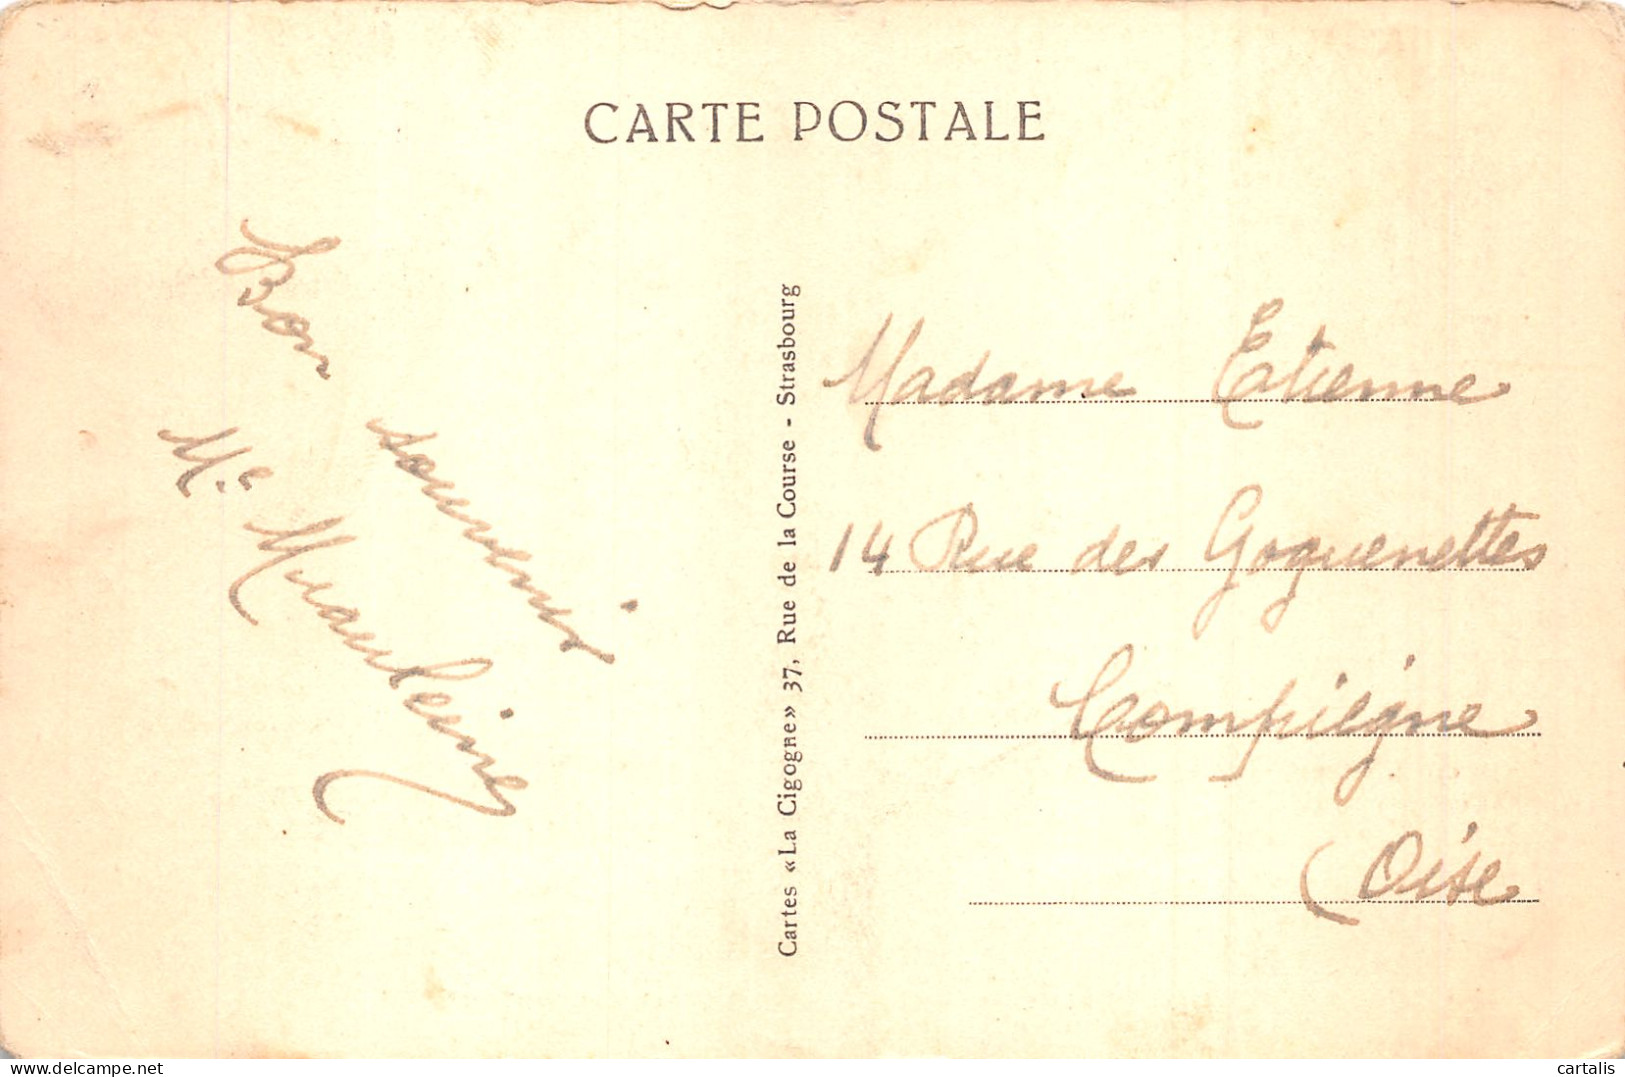 CARTE POSTALE
Bon souvenir
Me
Cartes «La Cigogne» 37, Rue de la Course - Strasbourg
Madame Etienne
14 Rue des Goguenettes
Compiègne
(Oise
delcampe.net
cartalis